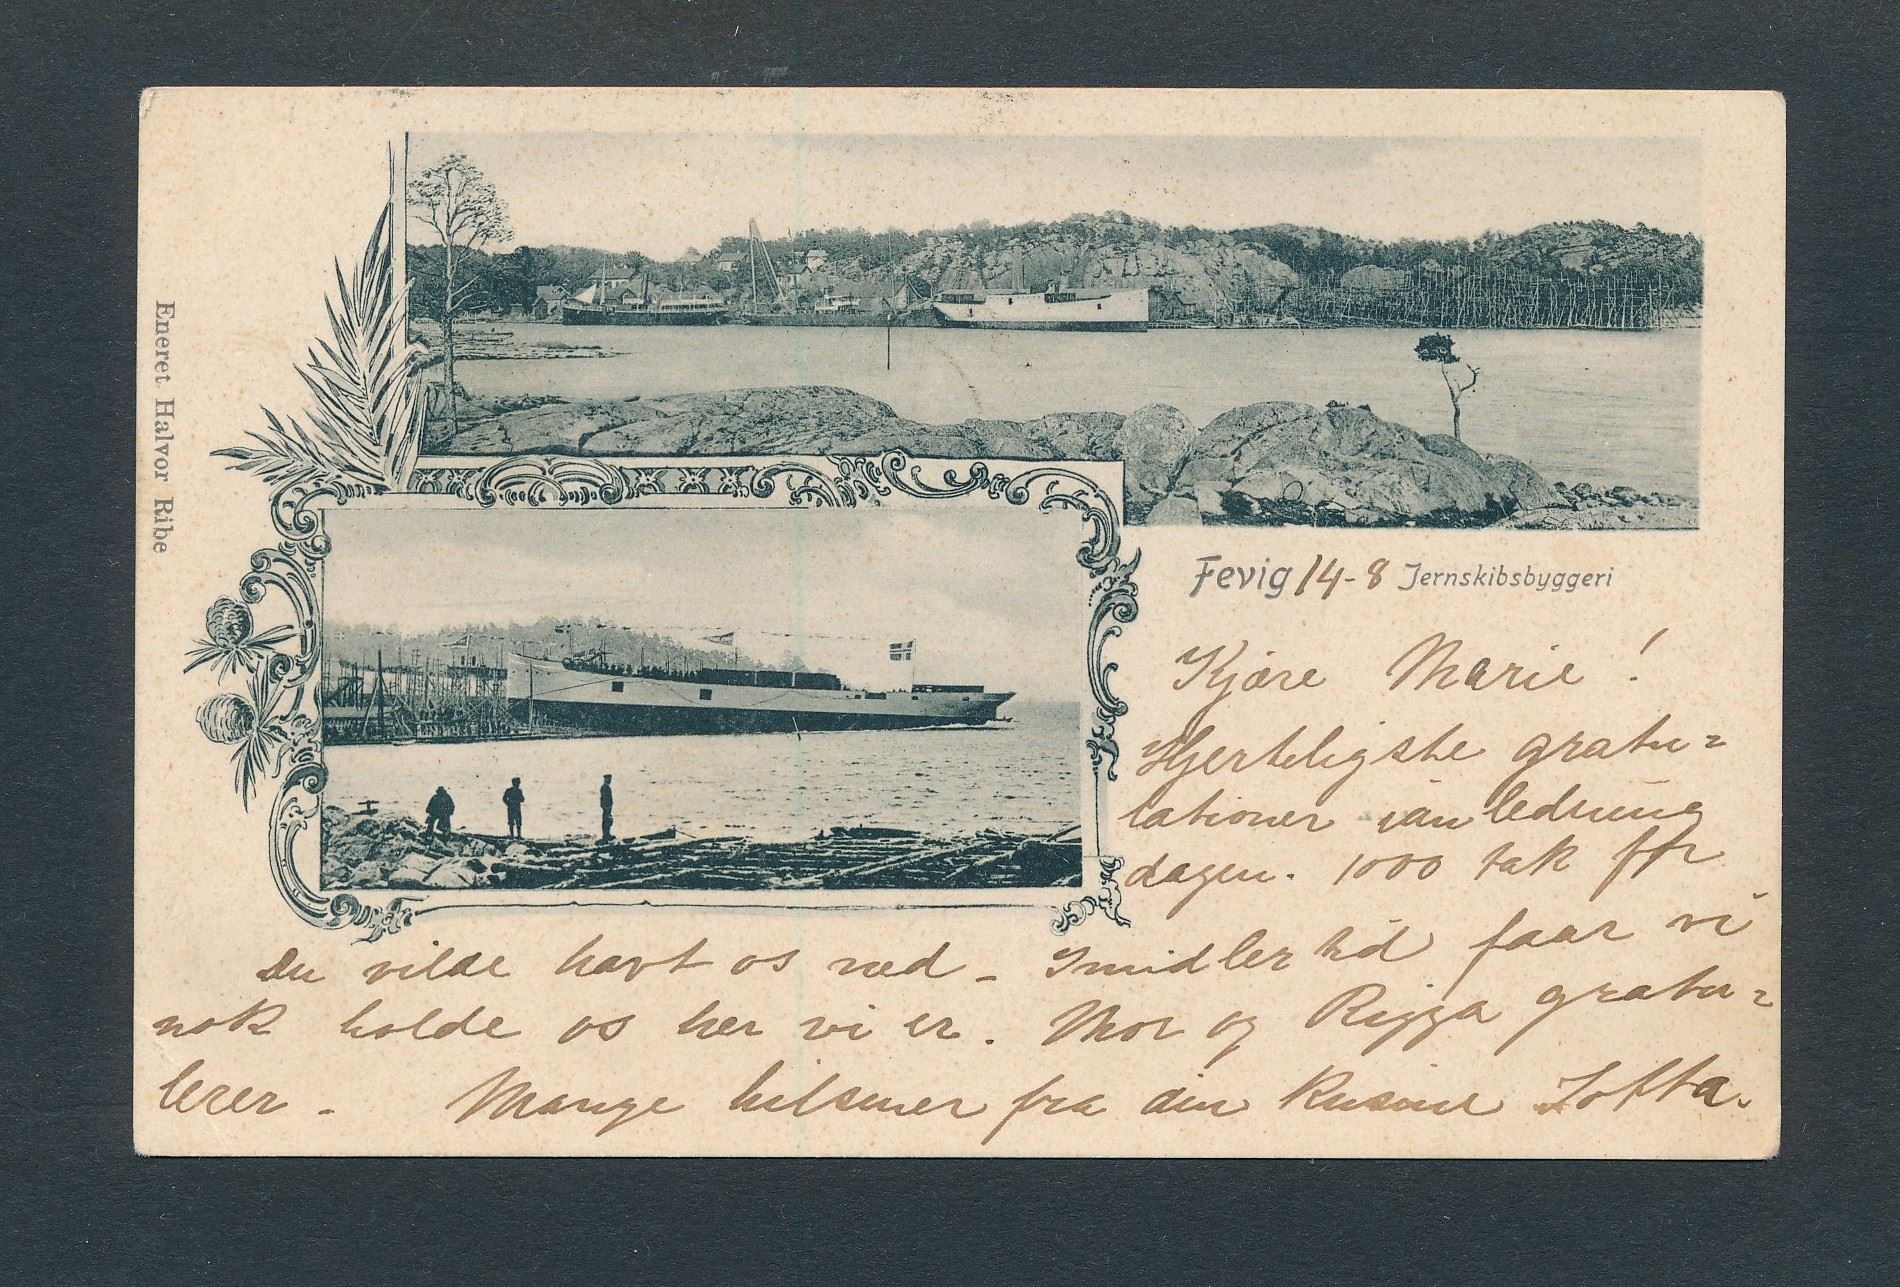 Eneret Halvor Ribe
Fevig 14-8 Jernskibsbyggeri
Kjære Marie!
Hjerteligste gratu=
lationer i anledning
dagen. 1000 tak for
Du vilde havt os ned - Imidlertid faar vi
nok holde os her vi er. Mor og Rigga gratu=
lerer - Mange hilsener fra din Kusine Lofta.